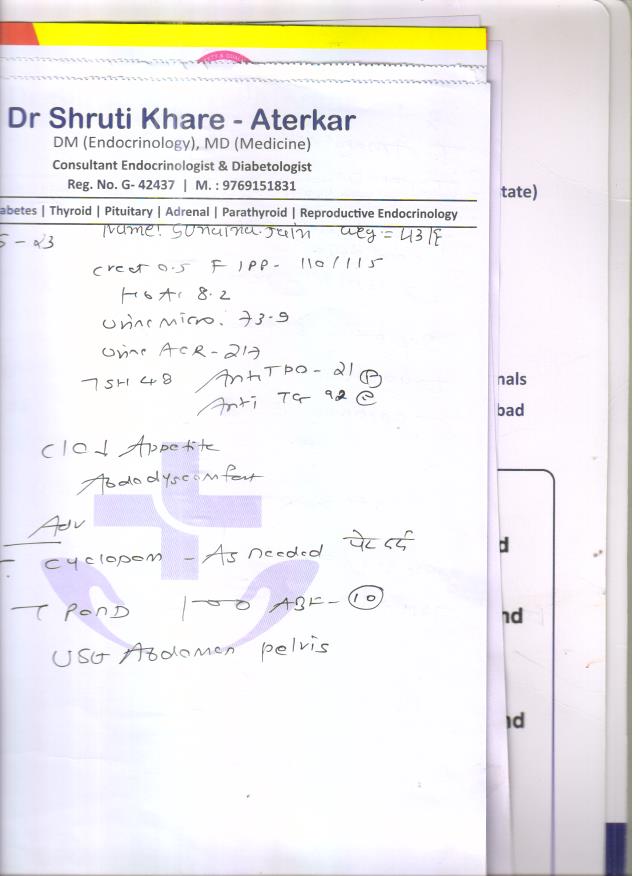 Dr Shruti Khare - Aterkar
DM (Endocrinology), MD (Medicine)
Consultant Endocrinologist & Diabetologist
Reg. No. G- 42437 | M. : 9769151831
abetes | Thyroid | Pituitary | Adrenal | Parathyroid | Reproductive Endocrinology
5 - 23
Name: Sunaina Jain Age = 43/F
creat 0.5 F 1PP- 110/115
HbA1 8.2
Urine Micro. 73.9
Urine ACR - 217
TSH 48 Anti TPO - 21
Anti TG 92
C/O ↓ Appetite
Abdo dyscomfort
Adv
cyclopam - As needed पेट दर्द
T Pan D 1-0-0 ABF - 10
USG Abdomen pelvis
tate)
nals
bad
d
nd
nd